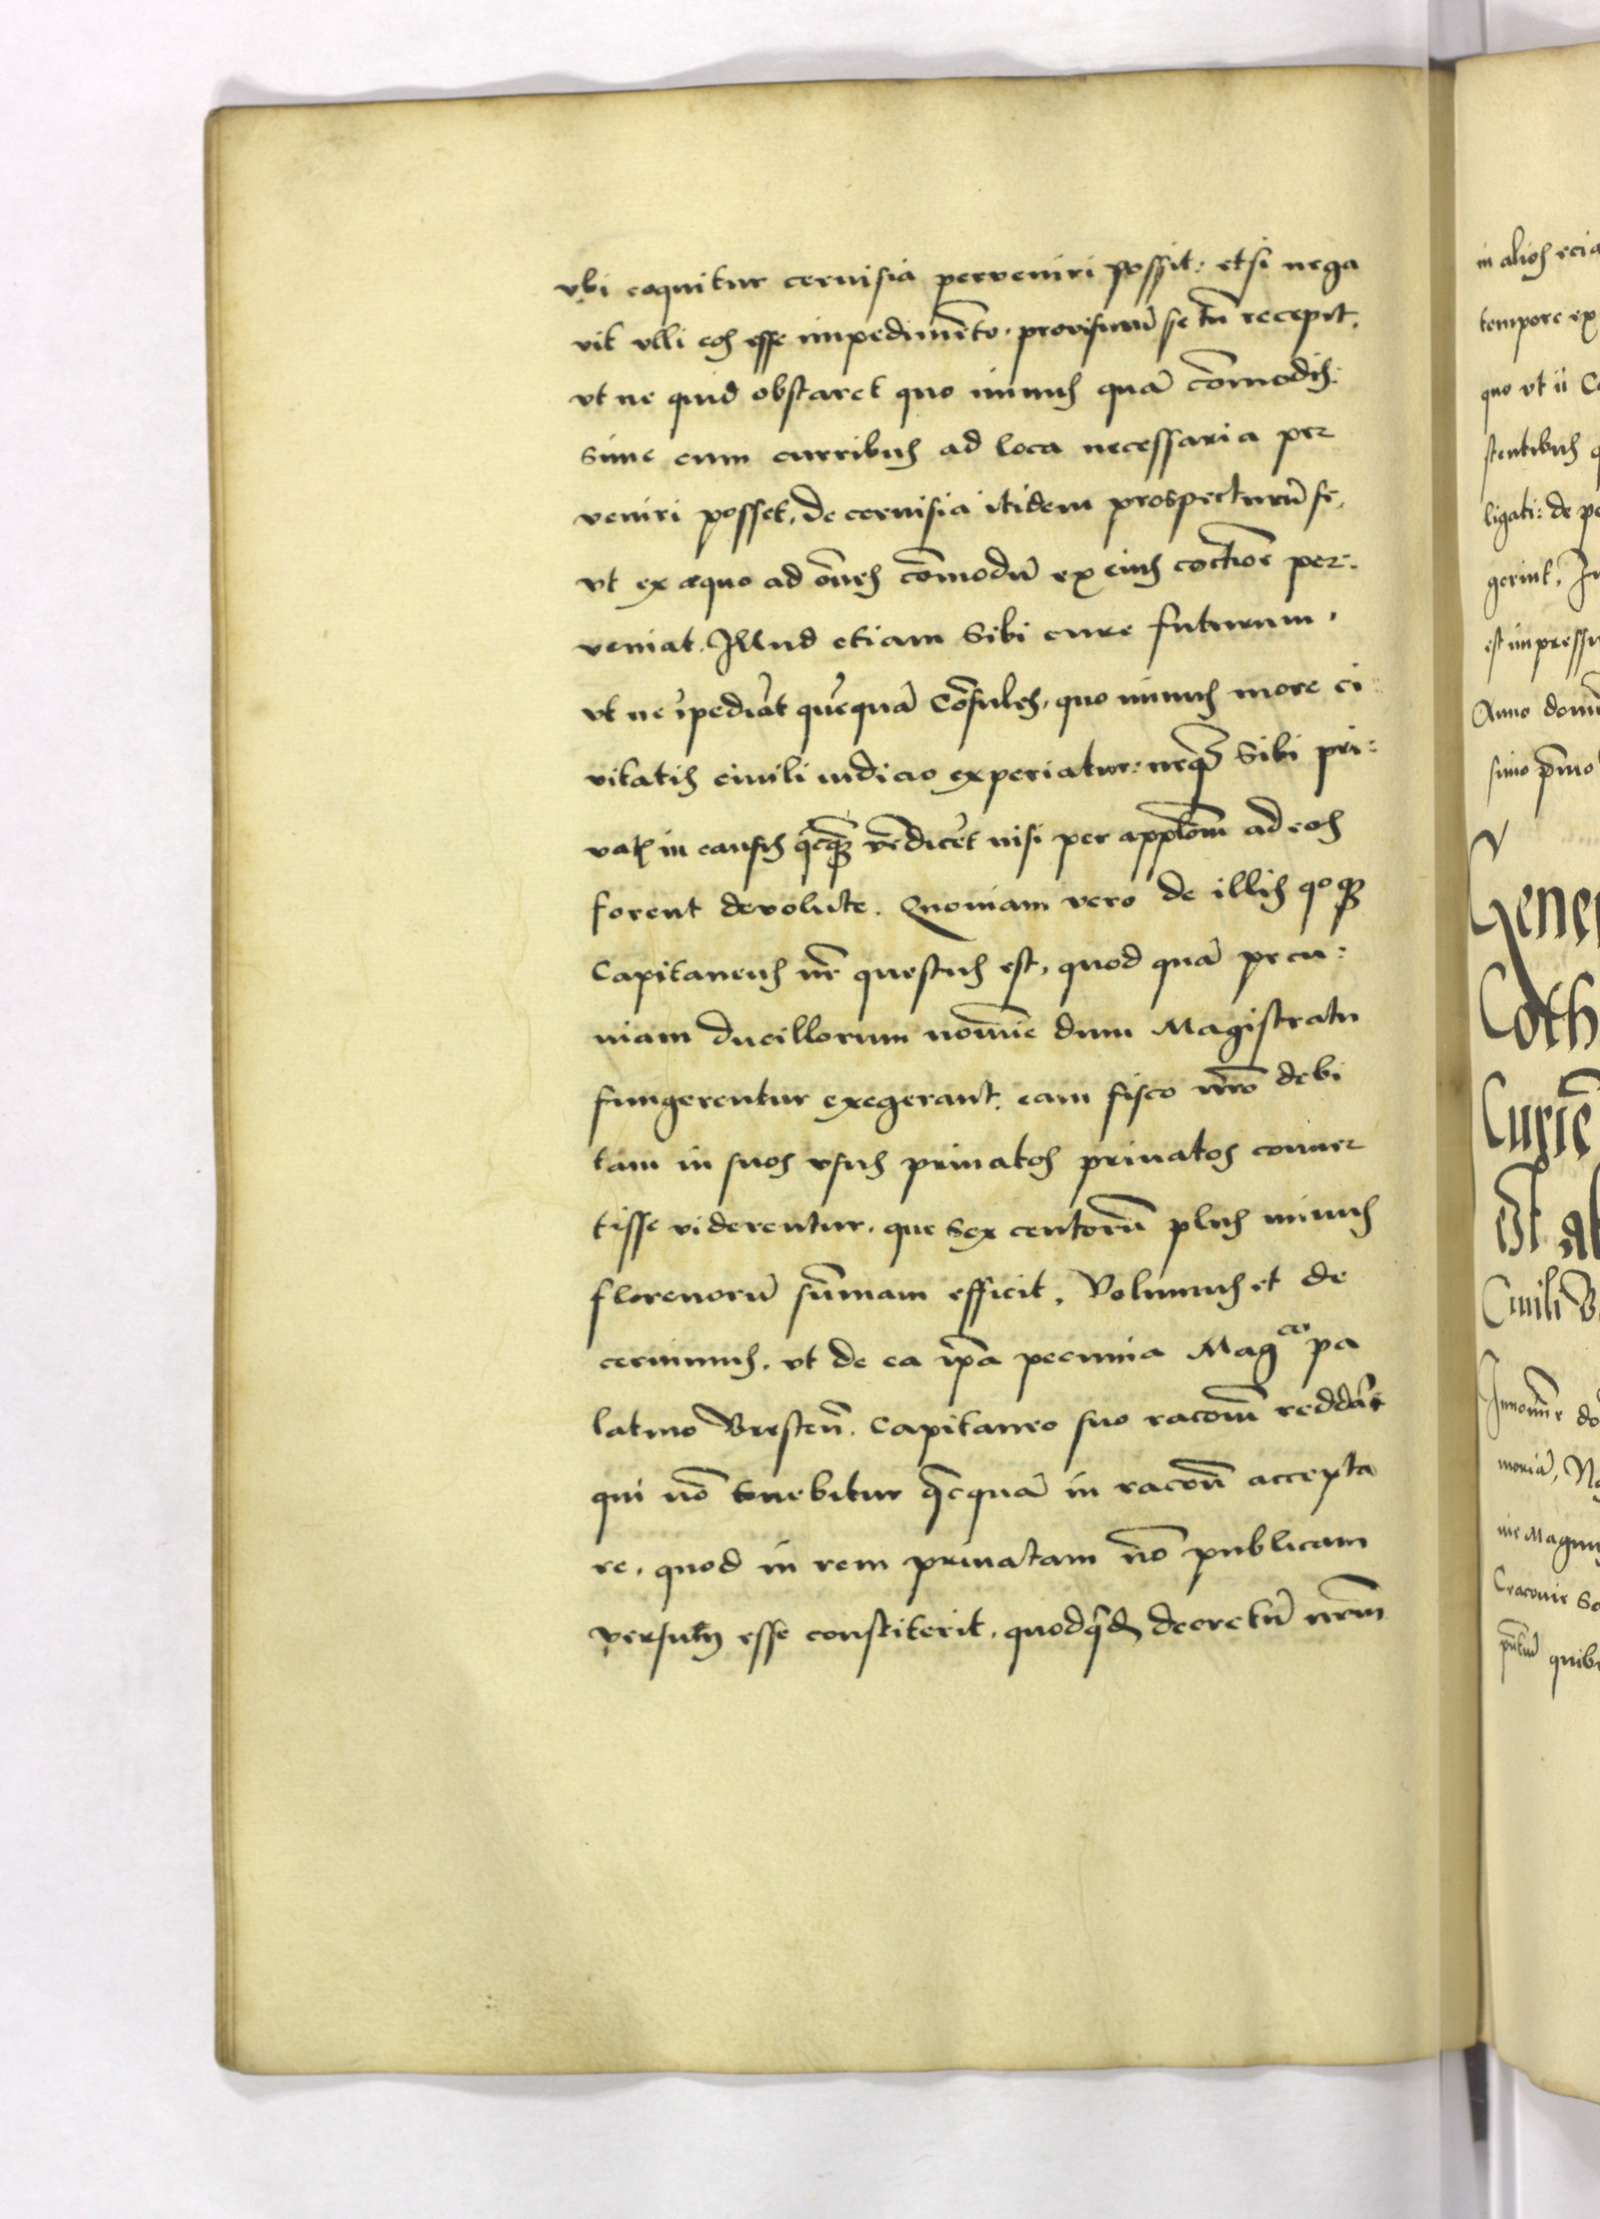 vbi coquitur ceruisia perveniri possit: etsi nega
vit vlli eos esse impedimēto. provisurū se tn̄ recepit.
vt ne quid obstaret quo minus quā cōmodis:
sime cum curribus ad loca necessaria per
veniri posset, de ceruisia itidem prospecturū se.
vt ex æquo ad om̄es cōmodū ex eius coctiōe per:
veniat. Illud etiam sibi cure futurum,
vt ne īpediāt quēquā Cōsules, quo minus more ci:
vitatis ciuili iudicio experiatur: neq3 sibi pri:
vatī in causis q̄cq3 vēdicēt nisi per app̄lōm ad eos
forent devolute. Quoniam vero de illis qoq3
Capitaneus nr̄ questus est, quod quā pecu:
niam ducillorum nomīe dum Magistratu
fungerentur exegerant. eam fisco nr̄o debi
tam in suos vsus priuatos priuatos conuer
tisse viderentur. que sex centorū plus minus
florenorū sūmam efficit. Volumus et de
cernimus. vt de ea ip̄a pecunia Mag^co pa
latino Bresteń. Capitaneo suo racōm reddāt
qui nō tenebitur q̄cquā in racōn̄ accepta
re. quod in rem priuatam nō publicam
versum esse constiterit. quodq̄d decretū nr̄m
in alios
tempore ex
quo vt ii
stentibus
ligati: de
gerint. In
est impress
Anno domi
simo p̄mo
Gene
Coth
Curiē
Et
Ciuili
In nomīe do
moriā, N
nie Magnus
Cracouie
quib